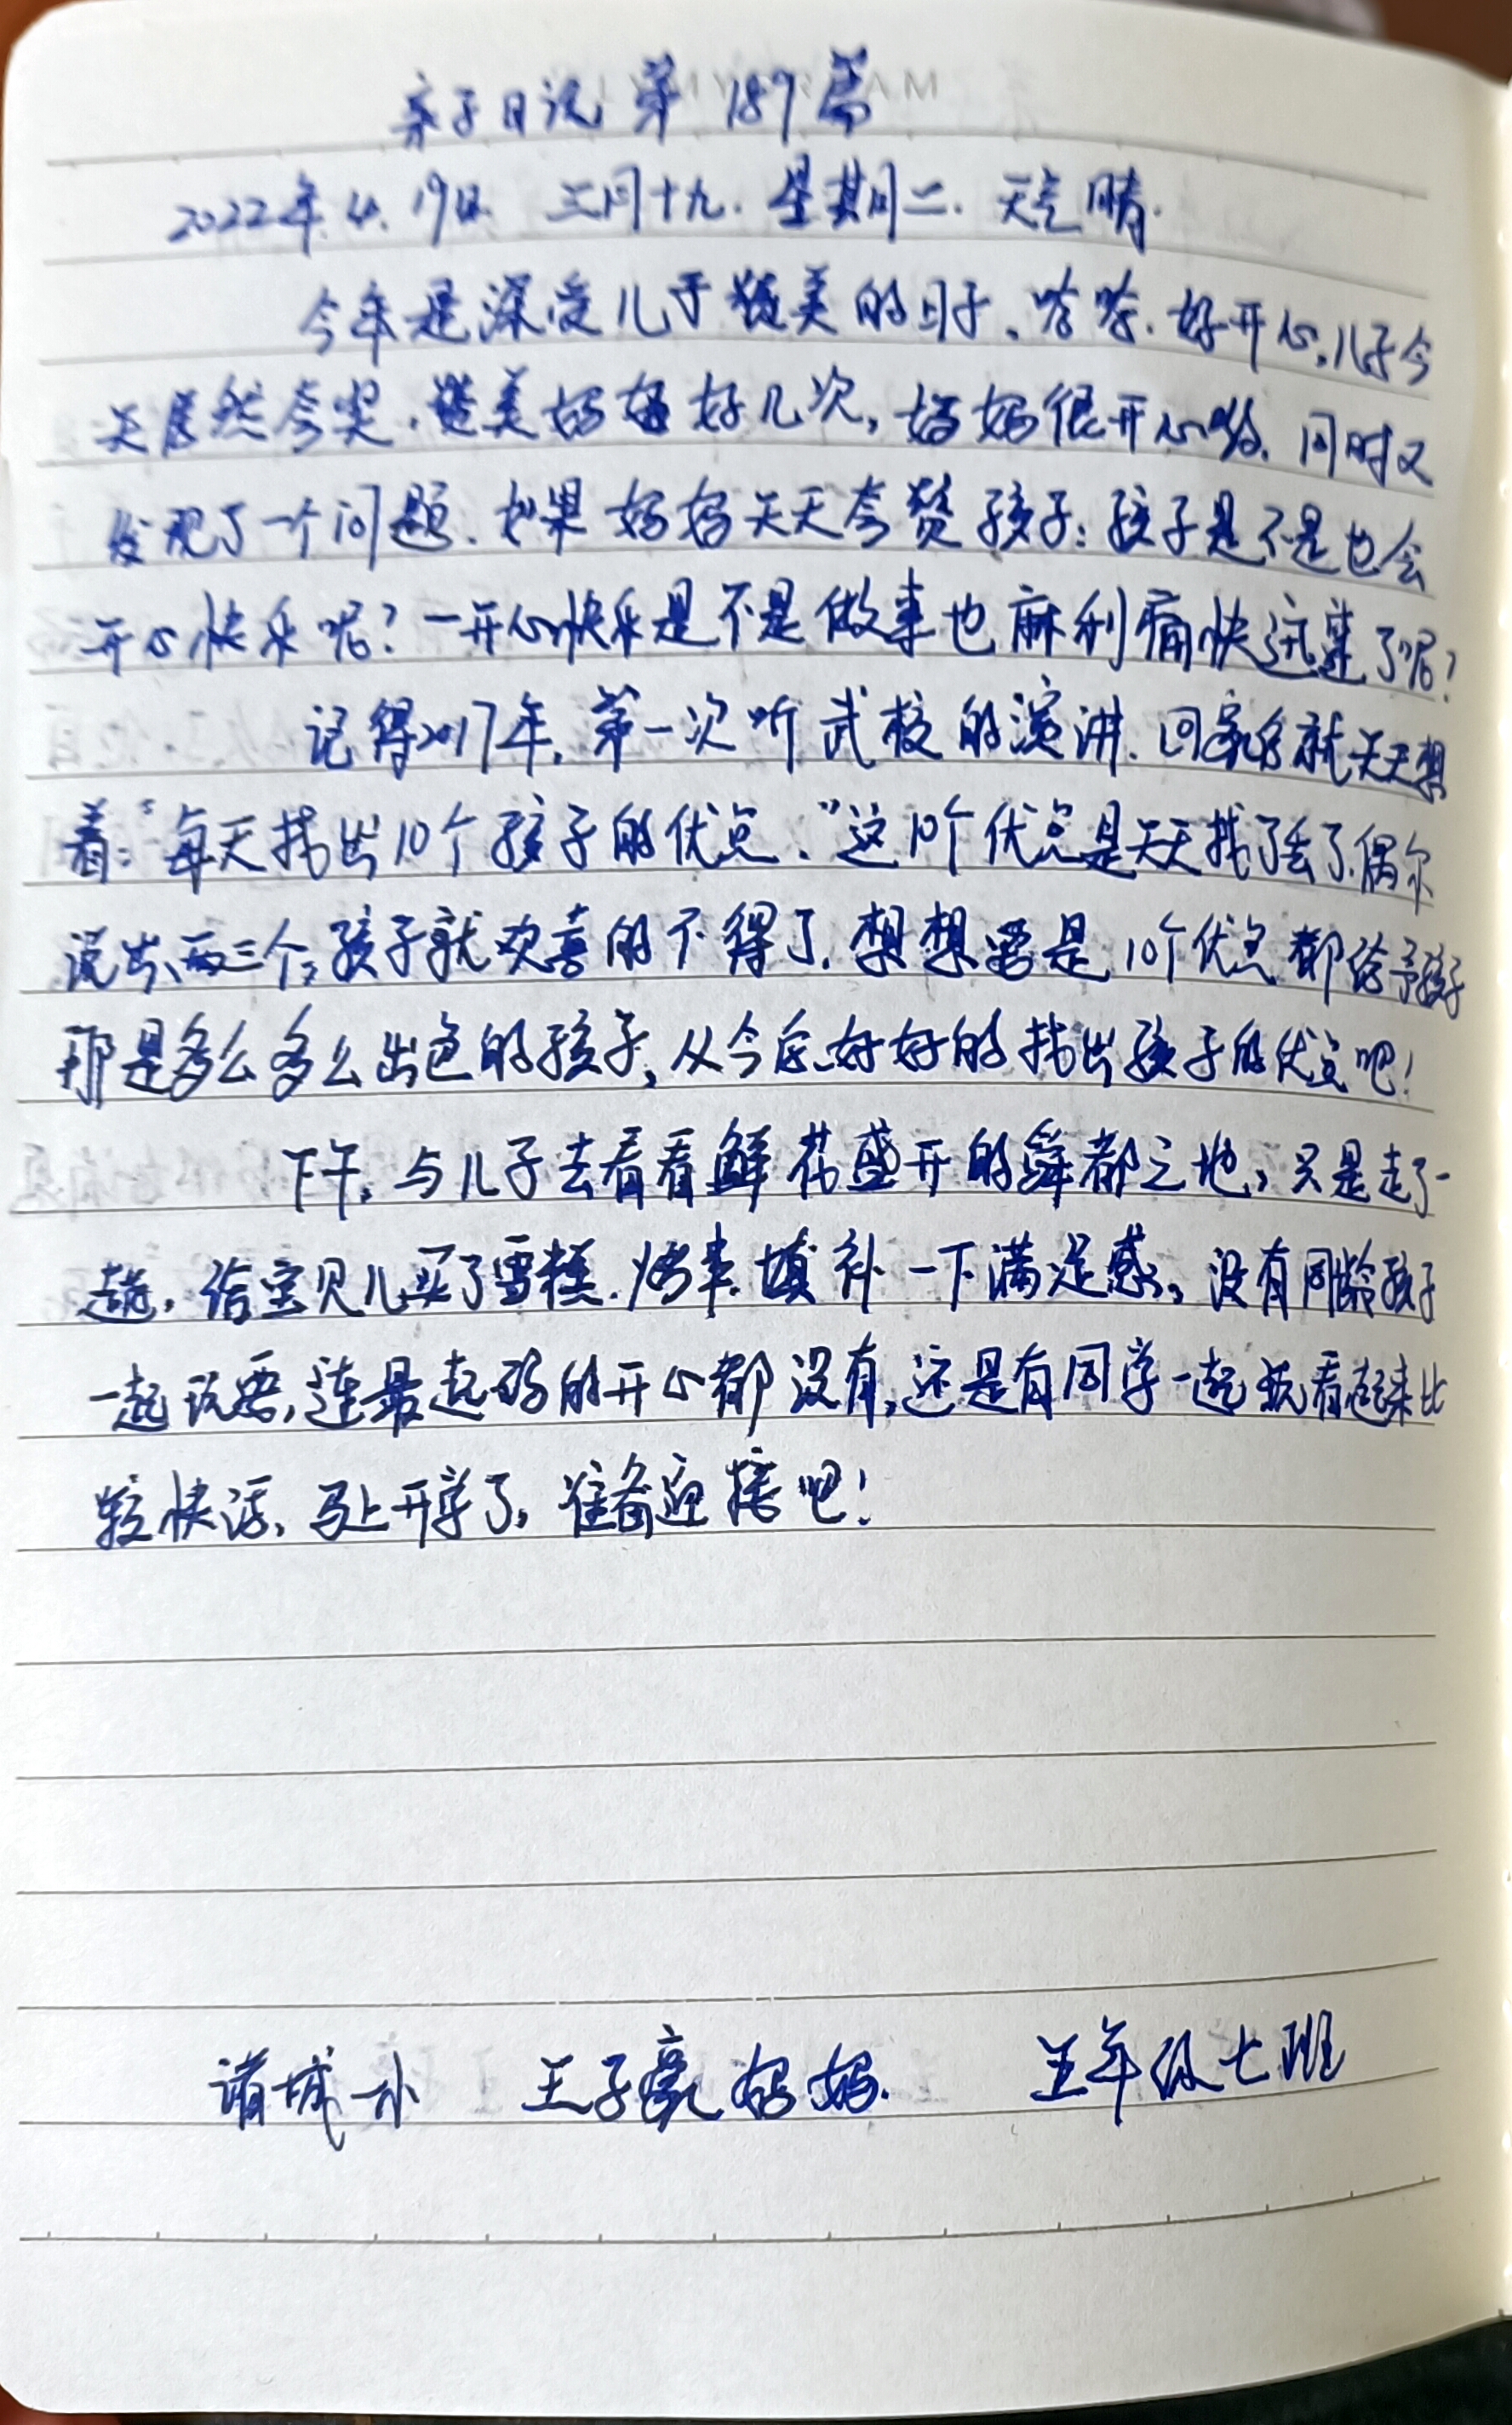 亲子日记 第 189 篇
2022年.4.19日 三月十九. 星期二. 天气晴.
今年是深受儿子赞美的日子、哈哈.好开心,儿子今
天居然夸奖.赞美妈妈好几次,妈妈很开心哈.同时又
发现了一个问题.如果妈妈天天夸赞孩子:孩子是不是也会
开心快乐呢?一开心快乐是不是做事也麻利痛快迅速了呢?
记得2017年,第一次听武校的演讲.回家后就天天想
着:“每天找出10个孩子的优点.”这10个优点是天天找了丢了.偶尔
说出、两三个,孩子就欢喜的不得了.想想要是10个优点都给予孩子
那是多么多么出色的孩子,从今后好好的找出孩子的优点吧!
下午,与儿子去看看鲜花盛开的舜都之地,只是走了一
趟,给宝贝儿买了雪糕.烤串.填补一下满足感,没有同龄孩子
一起玩耍,连最起码的开心都没有,还是有同学一起玩看起来比
较快活,马上开学了,准备迎接吧!
诸城一小 王子豪妈妈. 五年级七班